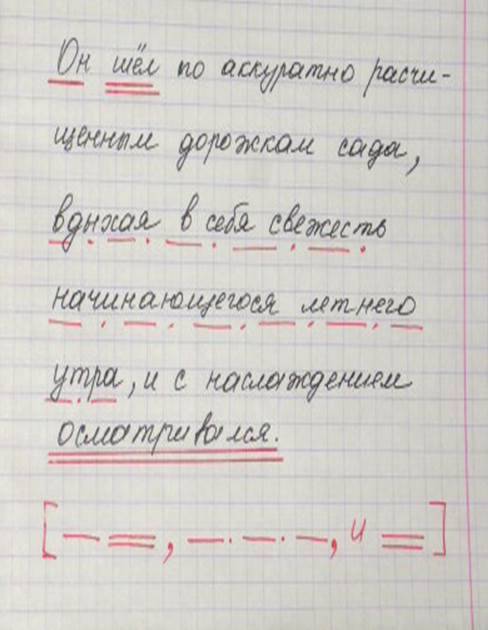 Он шёл по аккуратно расчи-
щенным дорожкам сада,
вдыхая в себя свежесть
начинающегося летнего
утра, и с наслаждением
осматривался.
[— =, —.—.—, и =]